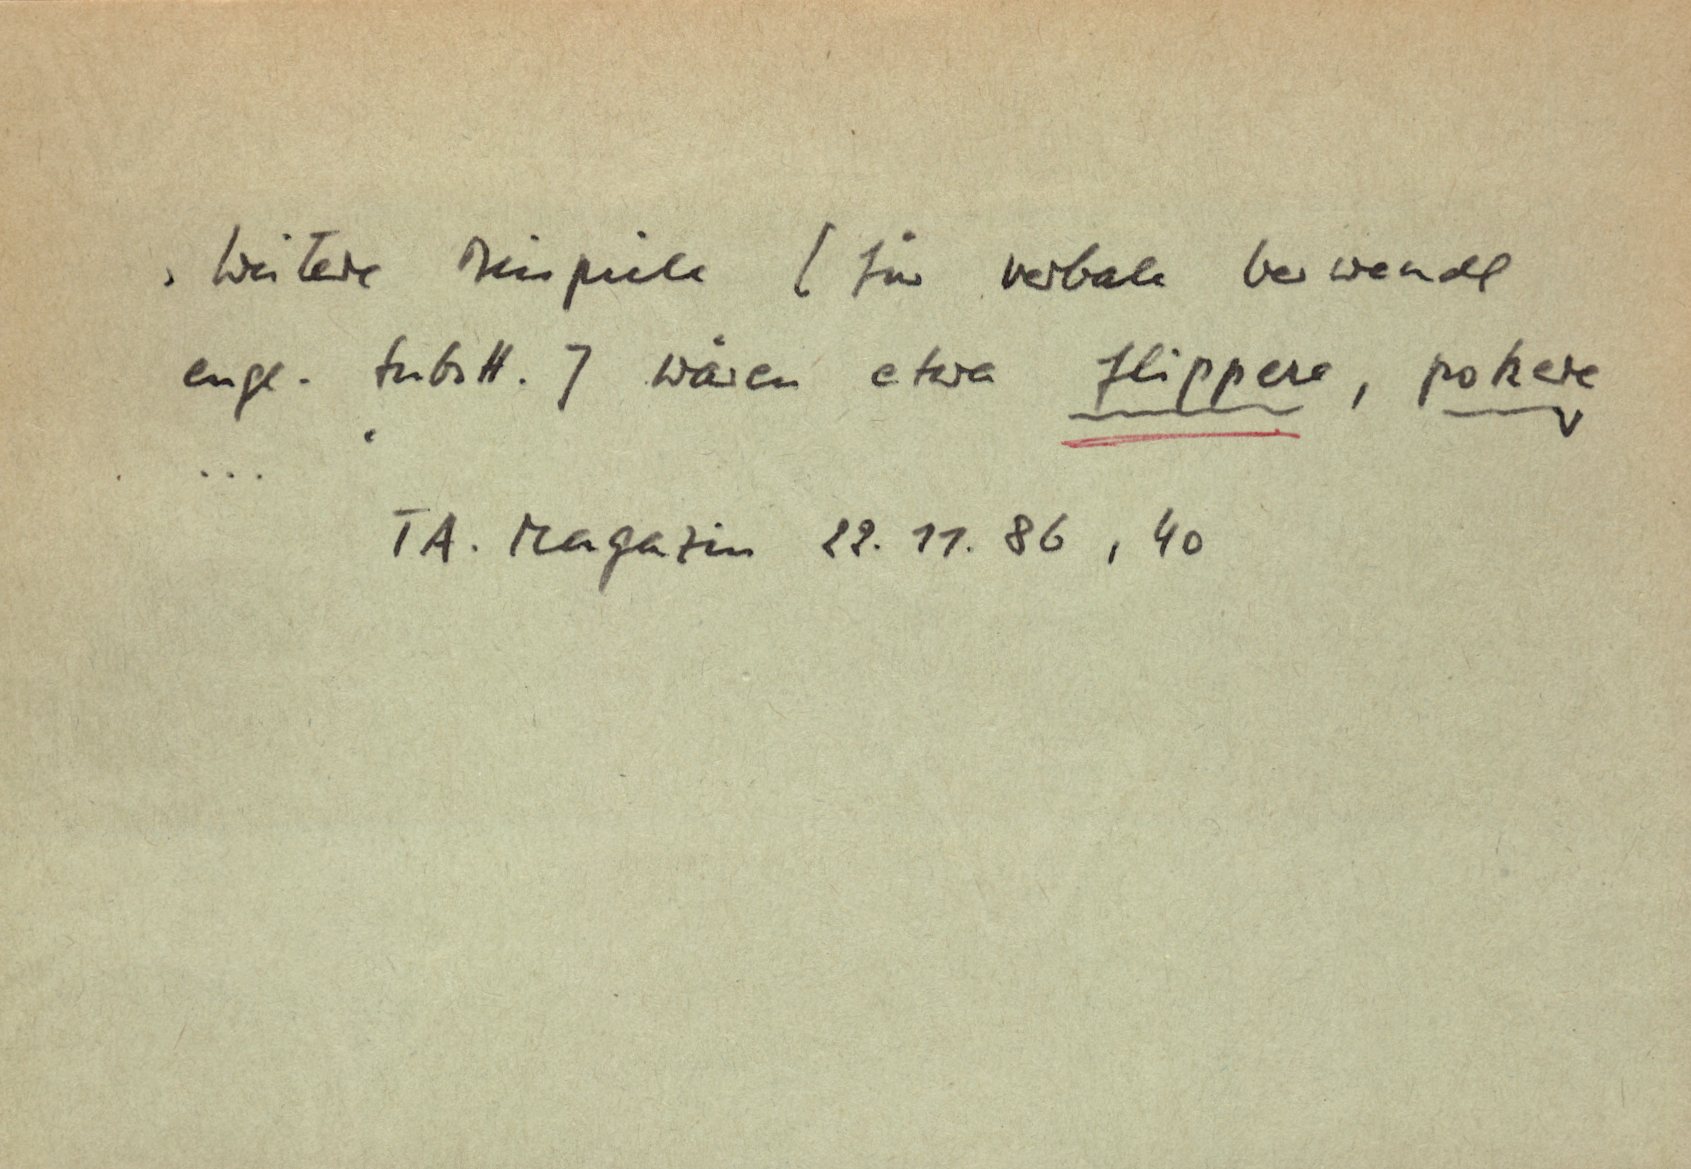 , Weitere Beispiele [ für verbale verwendg
engl. Substt. ] wären etwa flippere, pokere
...
TA. Magazin 22. 11. 86, 40